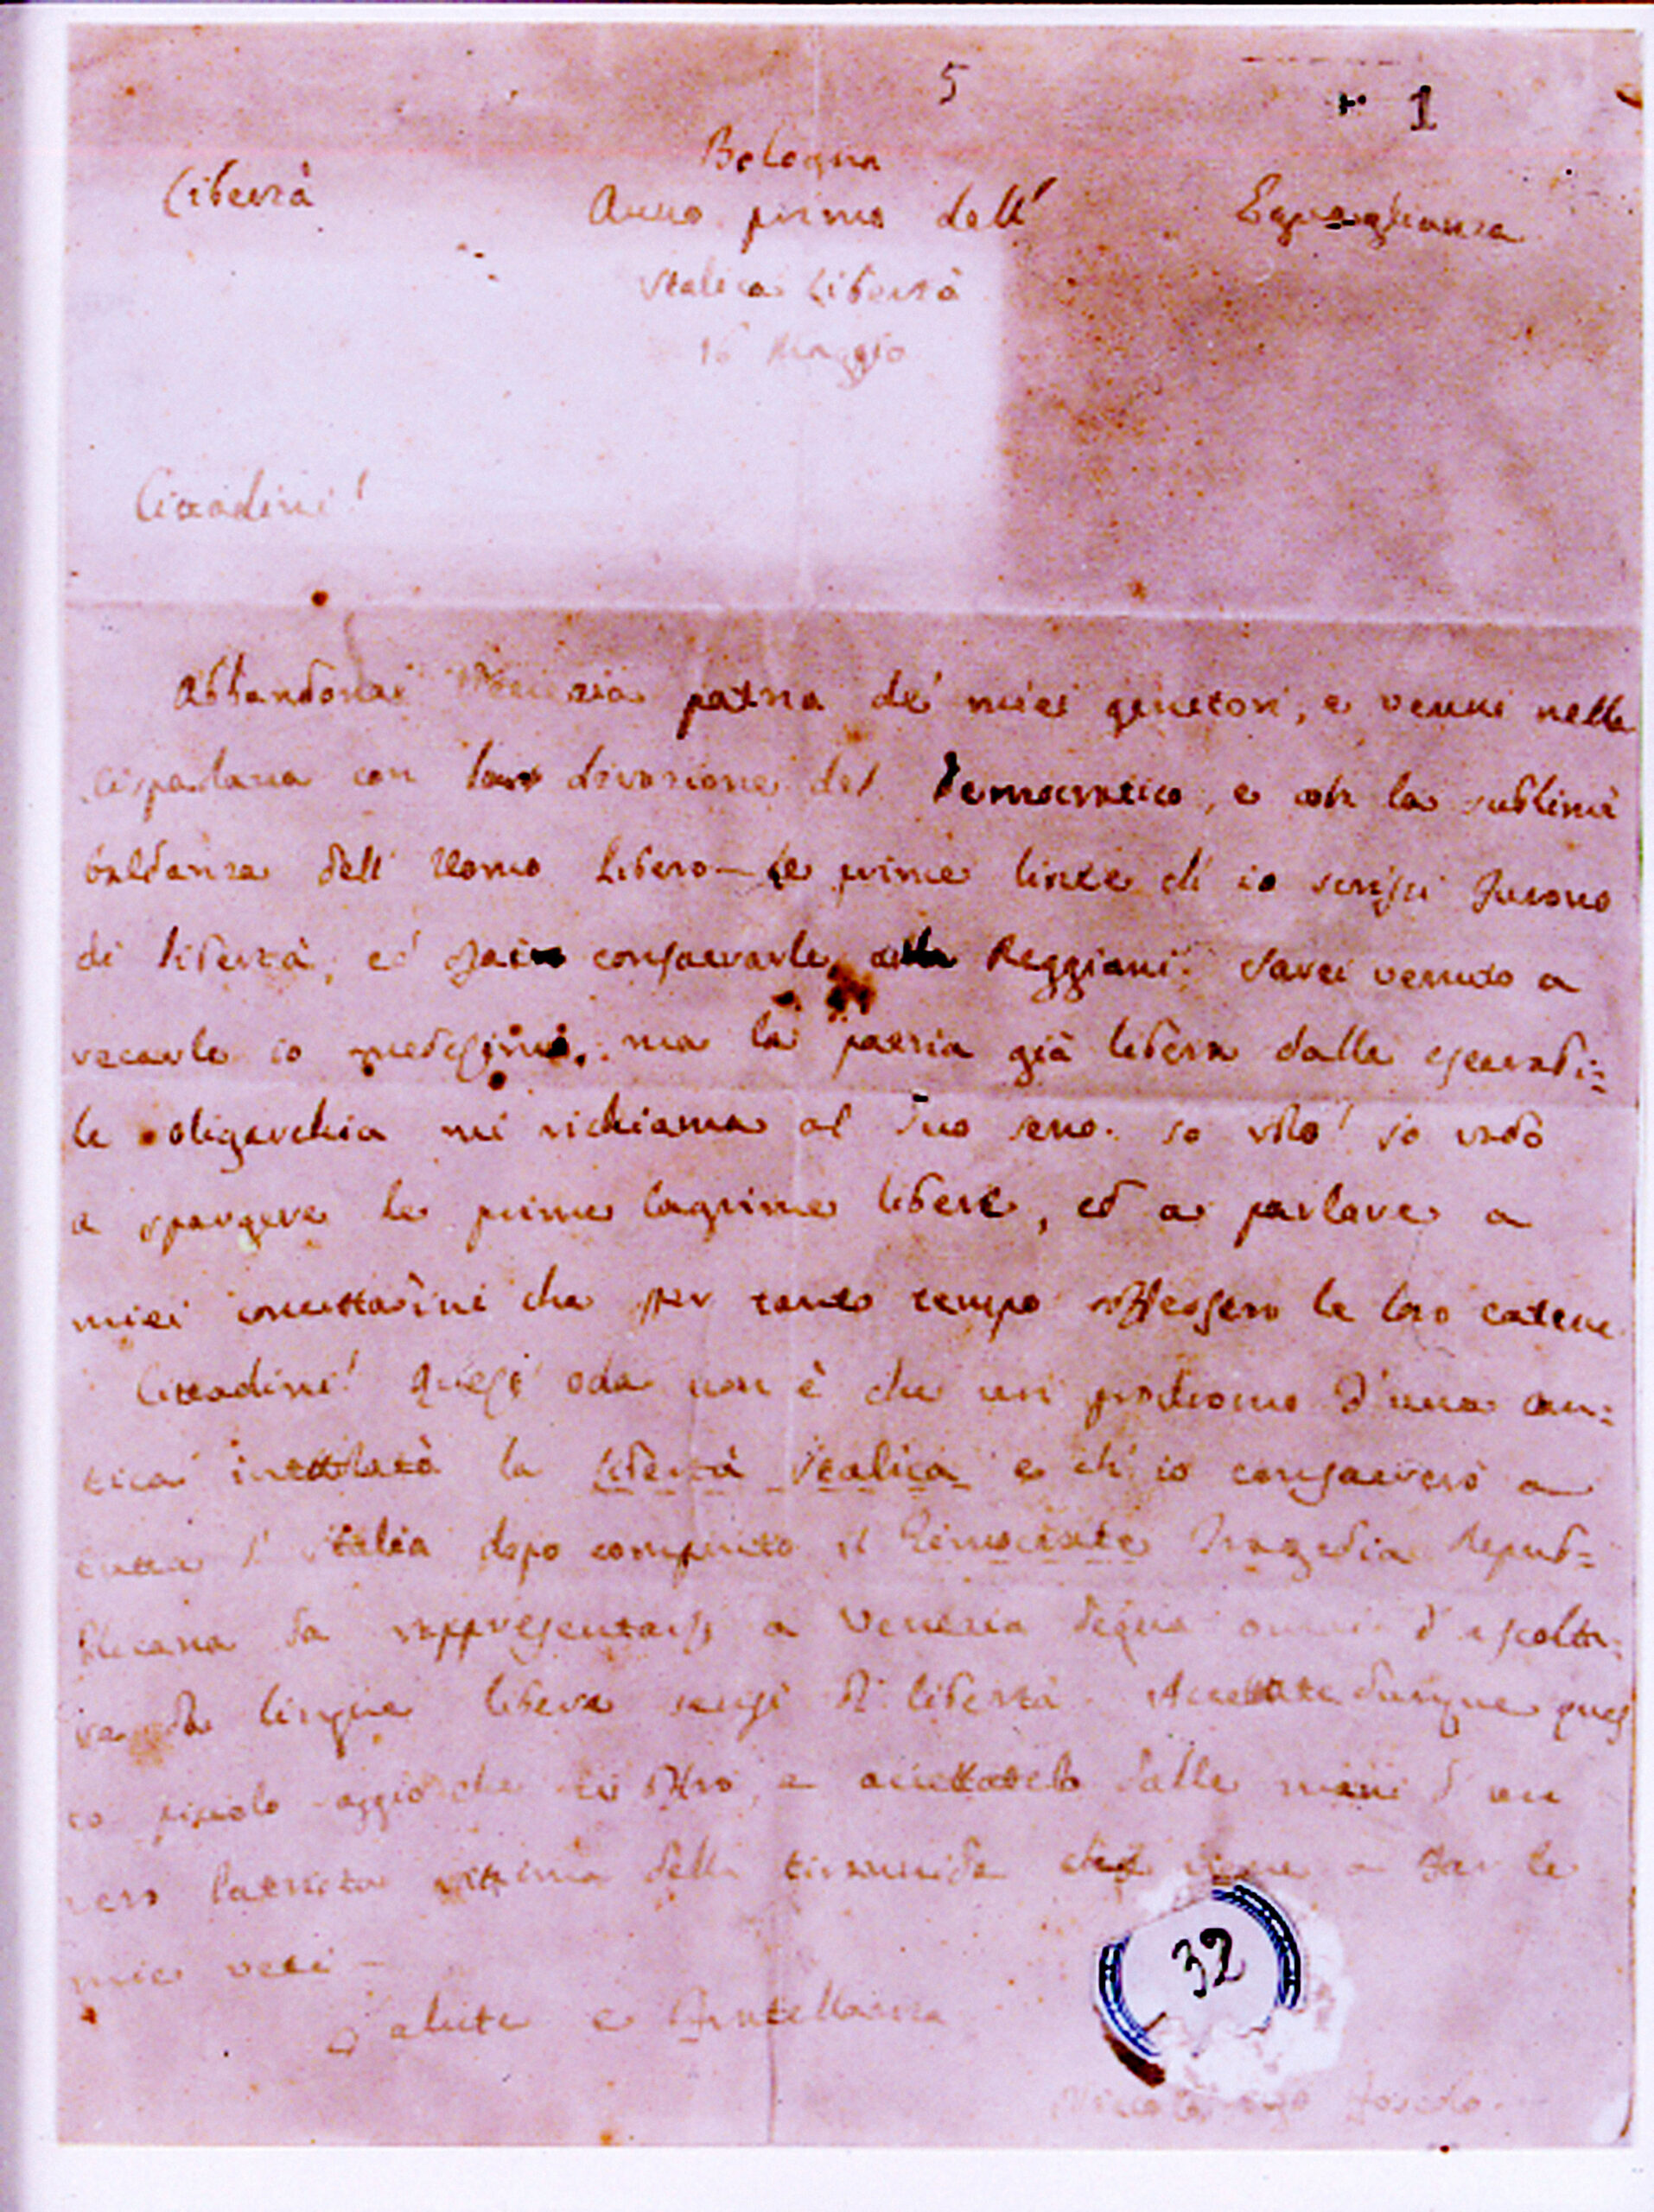 5
1
Bologna
Libertà Anno primo dell' Eguaglianza
Italica Libertà
16 Maggio
Cittadini!
Abbandonai Venezia patria de' miei genitori, e venni nella
Cispadana con divozione del Democratico, e con la sublime
baldanza dell' Uomo Libero — Le prime linee ch' io scrissi furono
di libertà, ed consacrarle Reggiani. Sarei venuto a
recarle io medesimo, ma la patria già libera dalla esecrabi=
le oligarchia mi richiama al suo seno. Io volo! Io vado
a spargere le prime lagrime libere, ed a parlare a
miei concittadini che per tanto tempo soffersero le loro catene.
Cittadini! Quest' oda non è che un prodromo d' una can=
tica intitolata la Libertà Italica e ch' io consacrerò a
tutta l' Italia dopo compiuto il Timocrate Tragedia Repub=
blicana da rappresentarsi a Venezia degna omai d' ascolta=
re da lingua libera sensi di libertà. Accettate dunque ques
to piccolo saggio che vi offro, e accettatelo dalle mani d' un
vero Patriota vittima della tirannide che viene a far le
mie veci —
Salute e Fratellanza
32
Niccolò Ugo Foscolo.